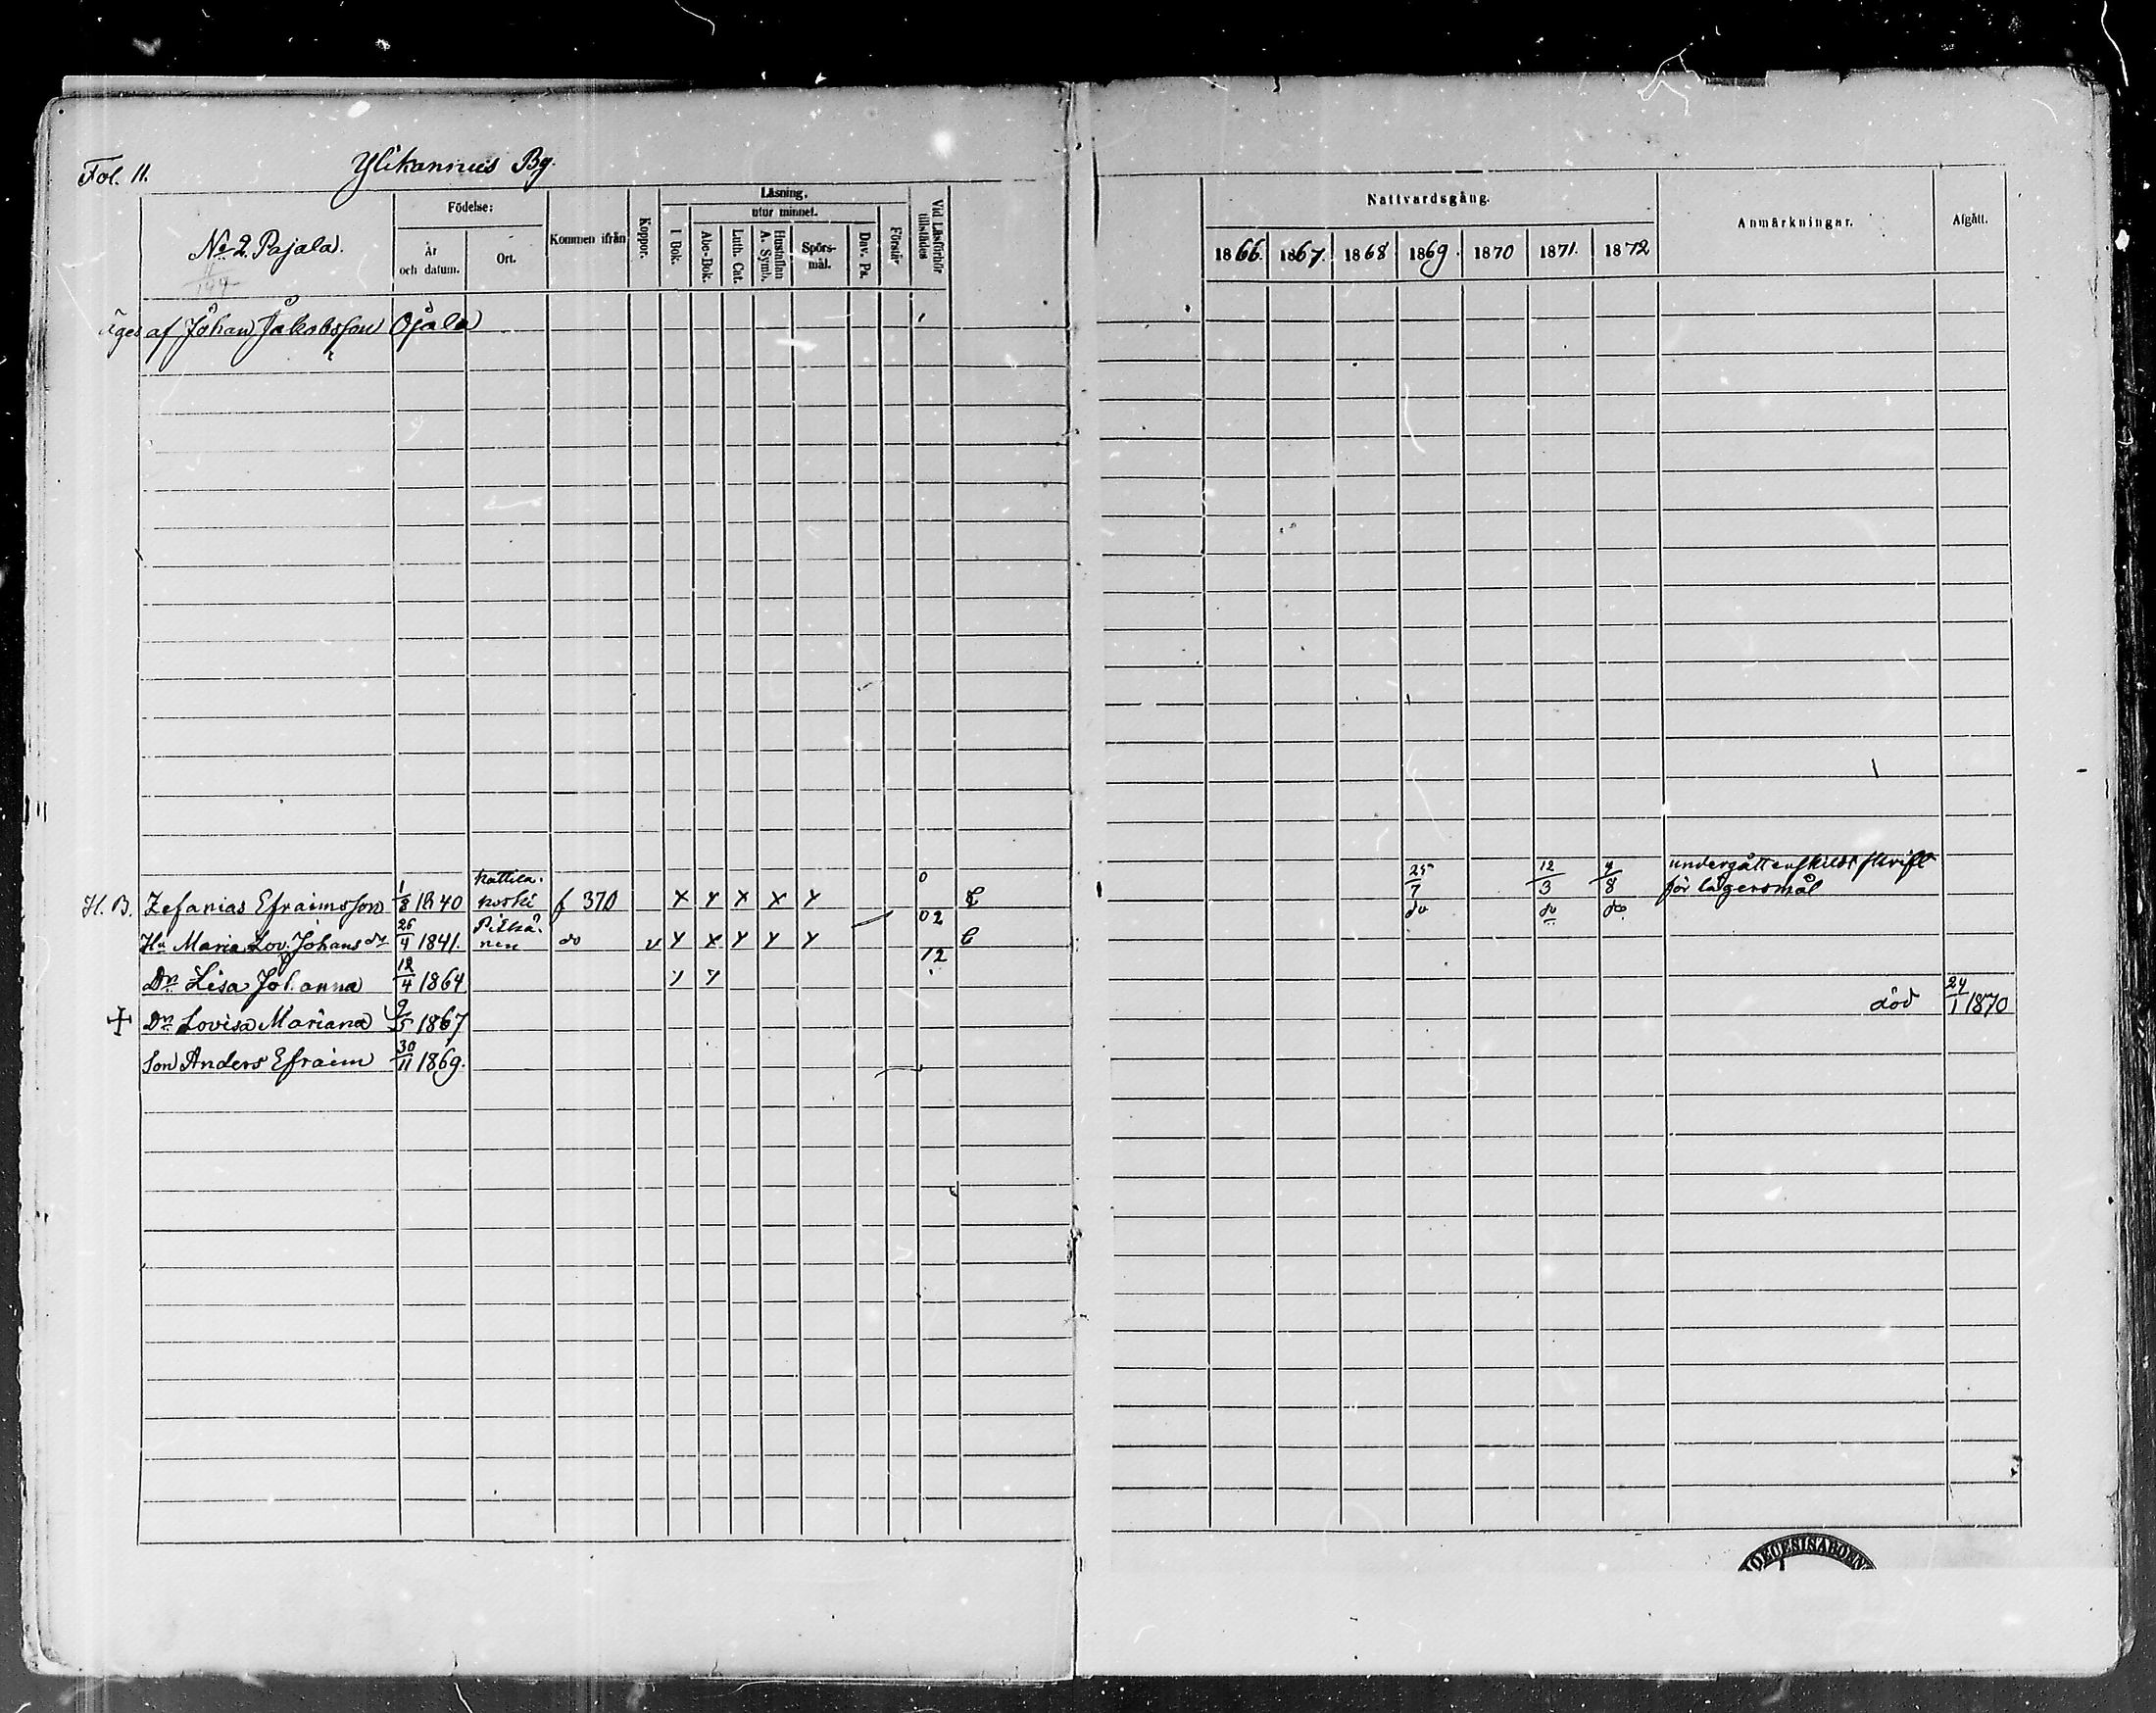 Fol. 11.
Ylikannus By.
No 2. Pajala.
Födelse:
År och datum.
Ort.
Kommen ifrån
Koppor.
Läsning.
utur minnet.
I Bok.
Abc-Bok.
Luth. Cat.
Hustaflan A. Symb.
Spörs-mål.
Dav. Ps.
Förstår
Vid Läsförhör tillstädes
Nattvardsgång.
1866. 1867. 1868 1869. 1870 1871. 1872
Anmärkningar.
Afgått.
äges af Johan Jakobsson Ojala
H. B. Zefanias Efraimsson 1/8 1840 Kattila-koski f 370 X Y X X Y 0 C 25/7 12/3 4/8 undergått enskildt skrift för lägersmål
Hu Maria Lov. Johans dr 26/4 1841. Pitkä-nen do v Y X Y Y Y 02 C do do do
Dr Lisa Johanna 12/4 1864 12
Dr Lovisa Mariana 9/5 1867 död 24/1 1870
Son Anders Efraim 30/11 1869.